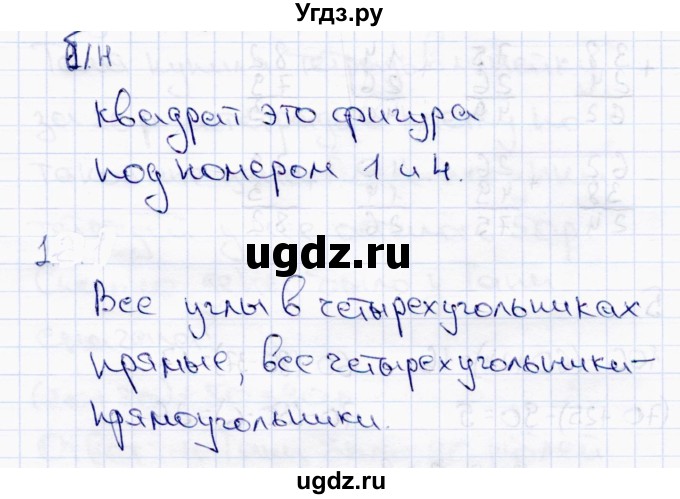 Угдз.ру
б/н
квадрат это фигура
под номером 1 и 4.
ugdz.ru
1.
Все углы в четырехугольниках
прямые, все четырехугольники-
прямоугольники.
ugdz.ru